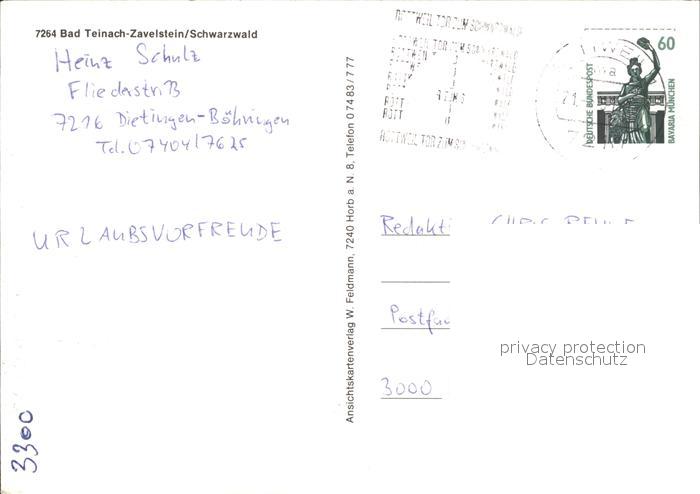 7264 Bad Teinach-Zavelstein/Schwarzwald
Heinz Schulz
Fliederstr. 13
7216 Dietingen-Böhringen
Tel. 07404/7625
URLAUBSVORFREUDE
3300
Ansichtskartenverlag W. Feldmann, 7240 Horb a. N. 8, Telefon 0 74 83 / 7 77
ROTTWEIL TOR ZUM SCHWARZWALD
ROTTWEIL TOR ZUM
60
DEUTSCHE BUNDESPOST
BAVARIA MÜNCHEN
Redakti
Postfac
3000
privacy protection
Datenschutz